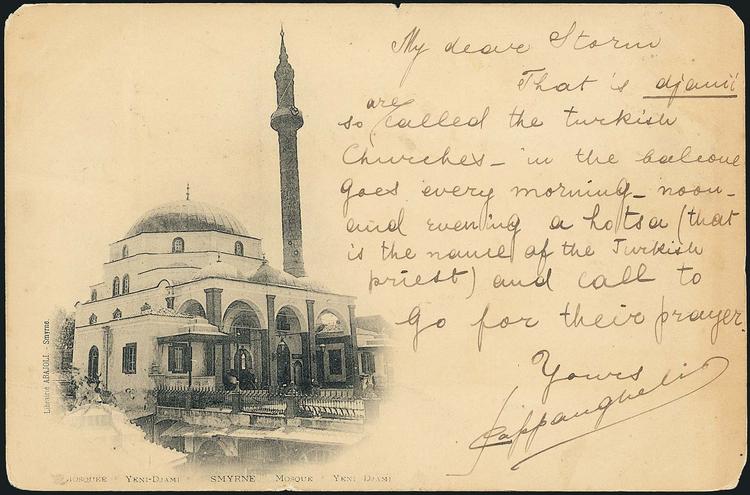 My dear Storm
That is djamii
are
so called the turkish
Churches - in the balcone
goes every morning - noon -
and evening a hotsa (that
is the name of the Turkish
priest) and call to
go for their prayer.
Yours
Librairie ABAJOLI. - Smyrne.
MOSQUÉE YENI-DJAMI SMYRNE MOSQUE YENI DJAMI